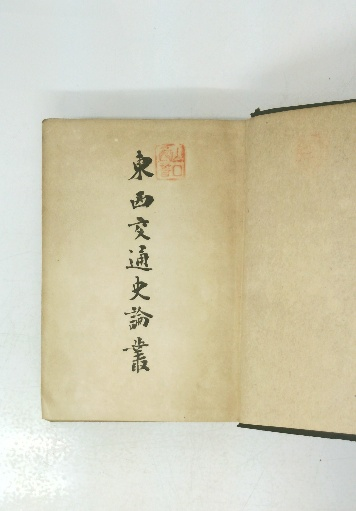 東西交通史論叢